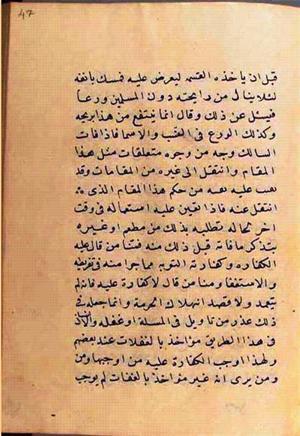 ٤٧
قبل ان ياخذه القسمه ليعرض عليه فمسك بانفه
لئلا ينال من رايحته دون المسلمين ورعا
فسئل عن ذلك وقال انما ينتفع من هذا بريحه
وكذلك الورع في الغيب والاسما فاذا فات
السالك وجه من وجوه متعلقات مثل هذا
المقام وانتقل الى غيره من المقامات وقد
نصب عليه نفسه من حكم هذا المقام الذى
انتقل عنه فاذا تعين عليه استعماله في وقت
اخر بحاله تطلبه بذلك من مطعم او غيره
يتذكر ما فاته قبل ذلك منه فمنا من قال عليه
الكفاره وكفارته التوبه مما جرا منه في تفريطه
والاستغفار ومنا من قال لا كفارة عليه فانه لم
يتعمد ولا قصد انتهاك الحرمة وانما جعله في
ذلك عذر من تاويل في المسئلة او غفله والانسان
في هذا الطريق مؤاخذ بالغفلات عند بعضهم
ولهذا اوجب الكفارة عليه من اوجبها ومن
ومن يرى انه غير مؤاخذ بالغفلات لم يوجب